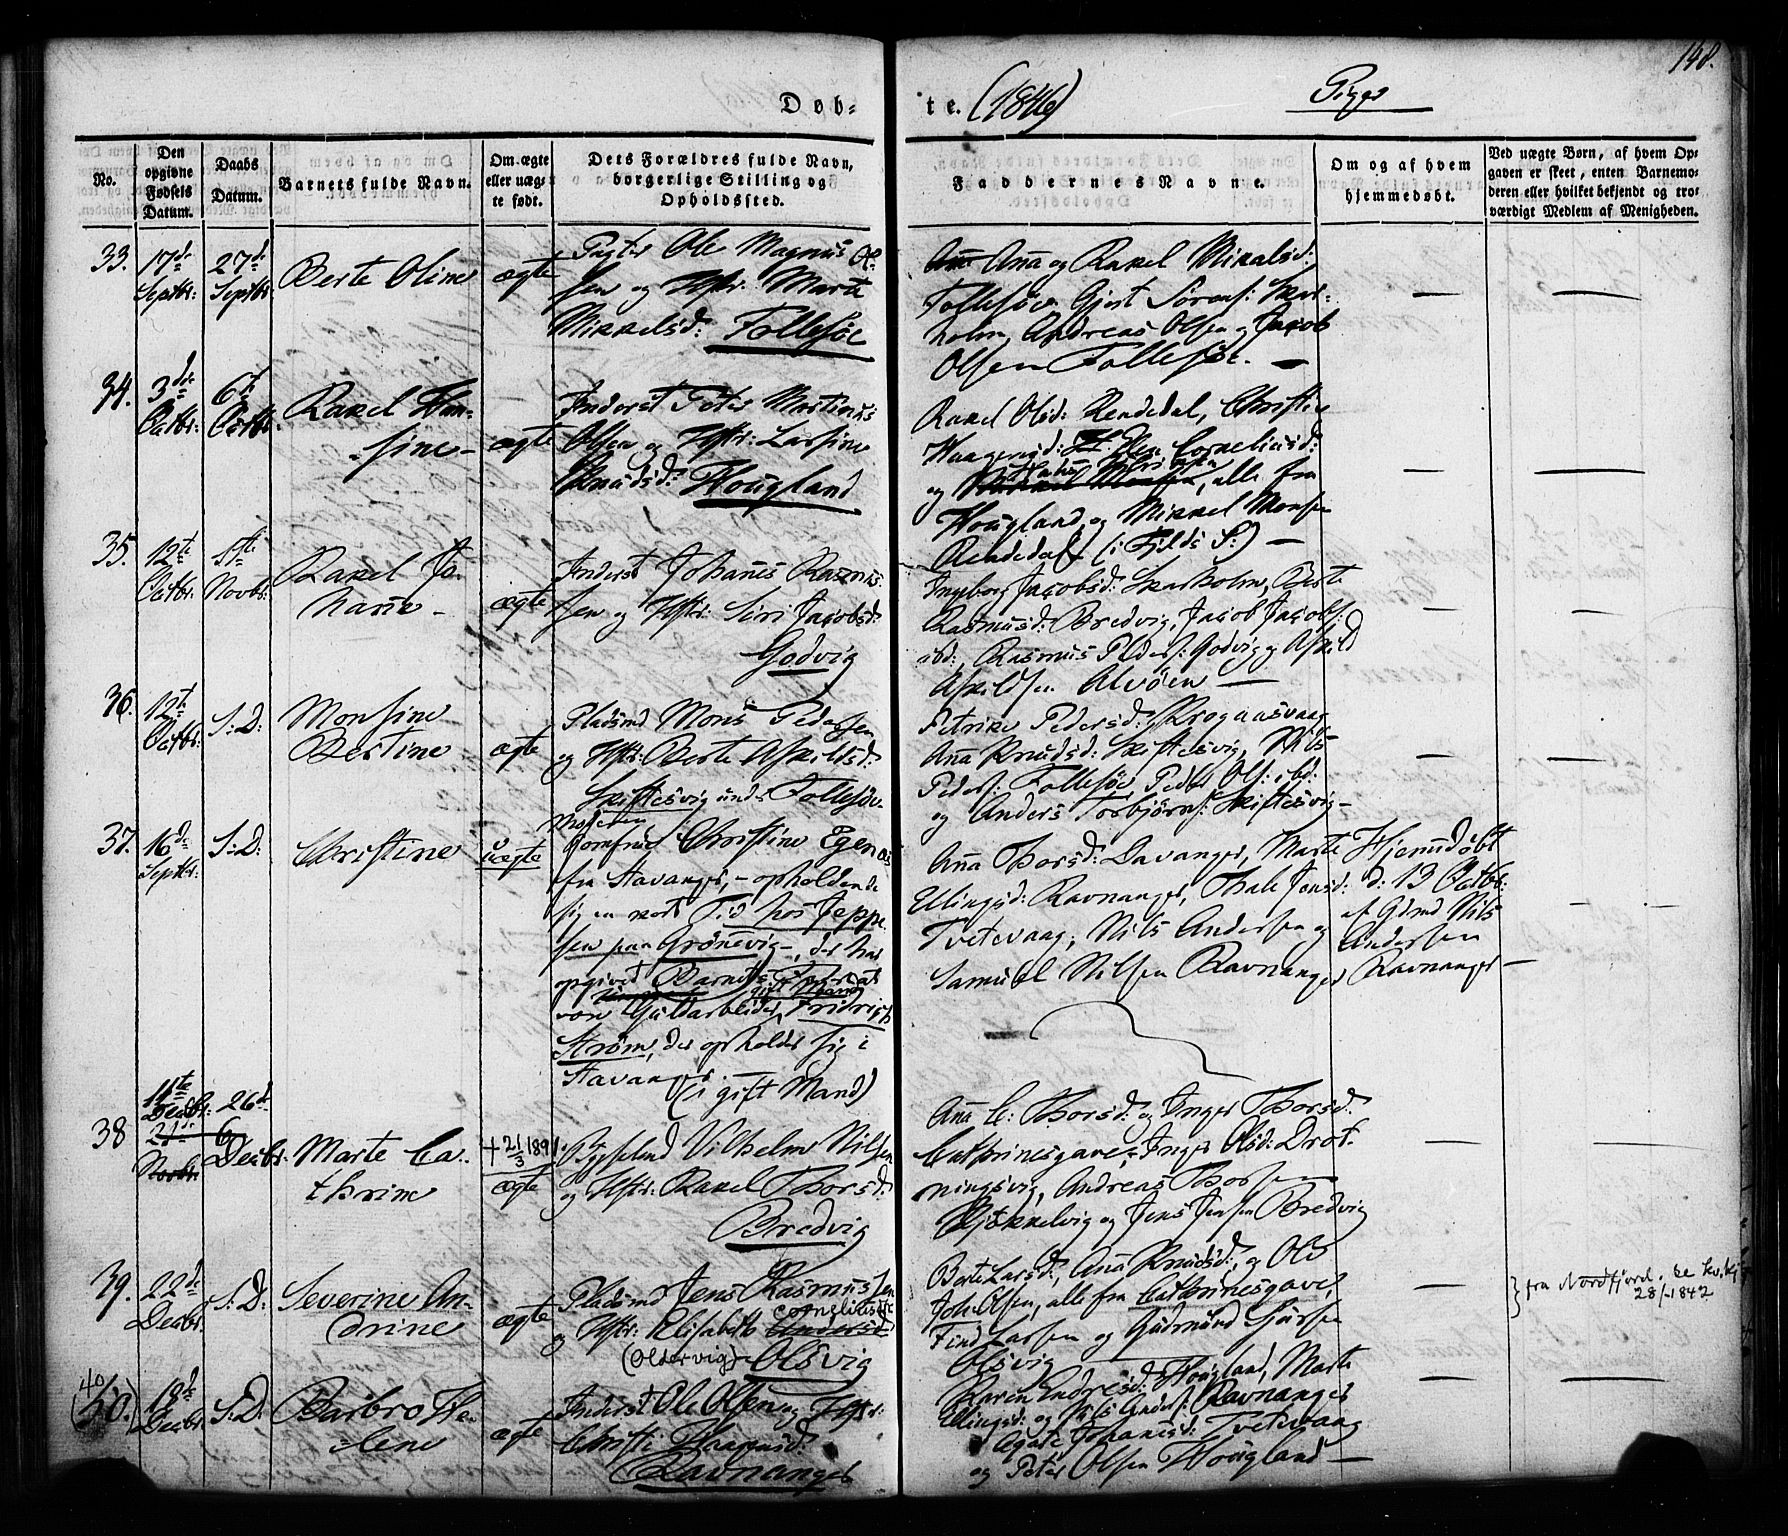 148.
Døb-
te. (1846)
Piger
No.
Den opgivne Fødsels Datum.
Daabs Datum.
Barnets fulde Navn.
Om ægte eller uægte født.
Dets Forældres fulde Navn, borgerlige Stilling og Opholdssted.
Faddernes Navne.
Om og af hvem hjemmedøbt.
Ved uægte Børn, af hvem Opgaven er skeet, enten Barnemoderen eller hvilket bekjendt og troværdigt Medlem af Menigheden.
33.
17de
Septbr:
27de
Septbr:
Berte Oline
ægte
Ole Magnus Ol-
sen og Hstr: Marte
Mikkelsd: Follesøe
Anna og Rakel Mikalsd:
Follesøe, Gjert Sørens: Skar-
holm, Andreas Olsen og Jacob
Olsen Follesøe. —
34.
3die
Octbr:
6te
Octbr:
Rakel Han-
sine —
ægte
Inderst Peter Martinus
Olsen og Hstr: Larsine
Knudsd: Hougland
Rakel Olsd: Rendedal, Christie
Haagensd: Elen Corneliusd:
og alle fra
Hougland og Mikkel Monsen
Rendedal (i Fjelds S:) —
35.
12te
Octbr:
1ste
Novbr:
Rakel Jo-
hanne —
ægte
Inderst Johannes Rasmus-
sen og Hstr: Siri Jacobsd:
Godvig
Ingeborg Jacobsd: Skarholm, Berte
Rasmusd: Bredvig, Jacob Jacobs:
ibd:, Rasmus Peders: Godvig og Askild
Askildsen Alvøen —
36.
12te
Octbr:
S: D:
Monsine
Bertine
ægte
Pladsmd Mons Pedersen
og Hstr: Berte Askildsd:
Skiftesvig under Follesøe
Petrike Pedersd: Krogaasvaag
Anna Knudsd: Skiftesvig, Nils
Peders: Follesøe, Peder Ols: ibd:
og Anders Torbjørns: Skiftesvig —
37.
16de
Septbr:
S: D:
Christine
uægte
Moderen
Jomfrue Christine Egenæs
fra Stavanger, — opholdende
sig en kort Tid hos Jeppe-
sen paa Grønevig —, der har
opgivet Barnets Fader at
gift Mand
være Guldarbeider Fridrich
Strøm, der opholder sig i
Stavanger. —
(i gift Mand)
Anna Thorsd: Davanger, Marte
Ellingsd: Ravnanger, Thale Jensd:
Tvetevaag, Nils Andersen og
Samuel Nilsen Ravnanger
Hjemmedøbt
d: 13 Octbr:
af Gdmd Nils
Andersen
Ravnanger —
38
11te
Decbr:
21de
Novbr:
26de
6
Decbr:
Marte Ca-
thrine
+ 21/3 1891
ægte
Bygselmd Vilhelm Nilsen
og Hstr: Rakel Thorsd:
Bredvig
Anna C: Thorsd: og Inger Thorsd:
Cathrinesgave, Inger Olsd: Drot-
ningsvig, Andreas Thorsen
Kjøkkelvig og Jens Jensen Bredvig
39.
22de
Decbr:
S: D:
Severine An-
drine
ægte
Pladsmd Jens Rasmussen
Corneliusdtr
og Hstr: Elisabeth Andersd:
(Oldervig) Olsvig
Berte Larsd:, Anna Knudsd:, og Ole
Joh: Olsen, alle fra Cathrinesgave,
Find Larsen og Gudmund Gjørsen
Olsvig
} fra Nordfjord. se kv. kj
28/-1842
40
(50.)
18de
Decbr:
S: D:
Barbro He-
lene
ægte
Inderst Ole Olsen og Hstr:
Christi Haagensd:
Ravnanger
Karen Endresd: Hougland, Marte
Ellingsd: og Nils Anders: Ravnanger
Agate Johannesd: Tvetevaag
og Peter Olsen Hougland —